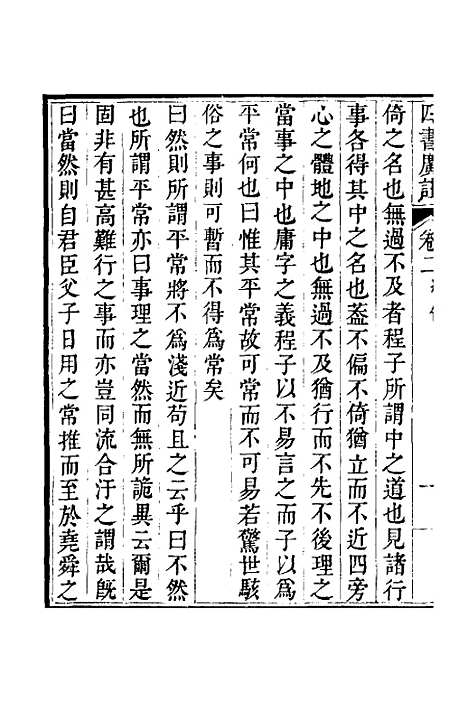 四書廣註 卷二
倚之名也無過不及者程子所謂中之道也見諸行
事各得其中之名也蓋不偏不倚猶立而不近四旁
心之體地之中也無過不及猶行而不先不後理之
當事之中也庸字之義程子以不易言之而子以爲
平常何也曰惟其平常故可常而不可易若驚世駭
俗之事則可暫而不得爲常矣
曰然則所謂平常將不爲淺近苟且之云乎曰不然
也所謂平常亦曰事理之當然而無所詭異云爾是
固非有甚高難行之事而亦豈同流合汙之謂哉旣
曰當然則自君臣父子日用之常推而至於堯舜之